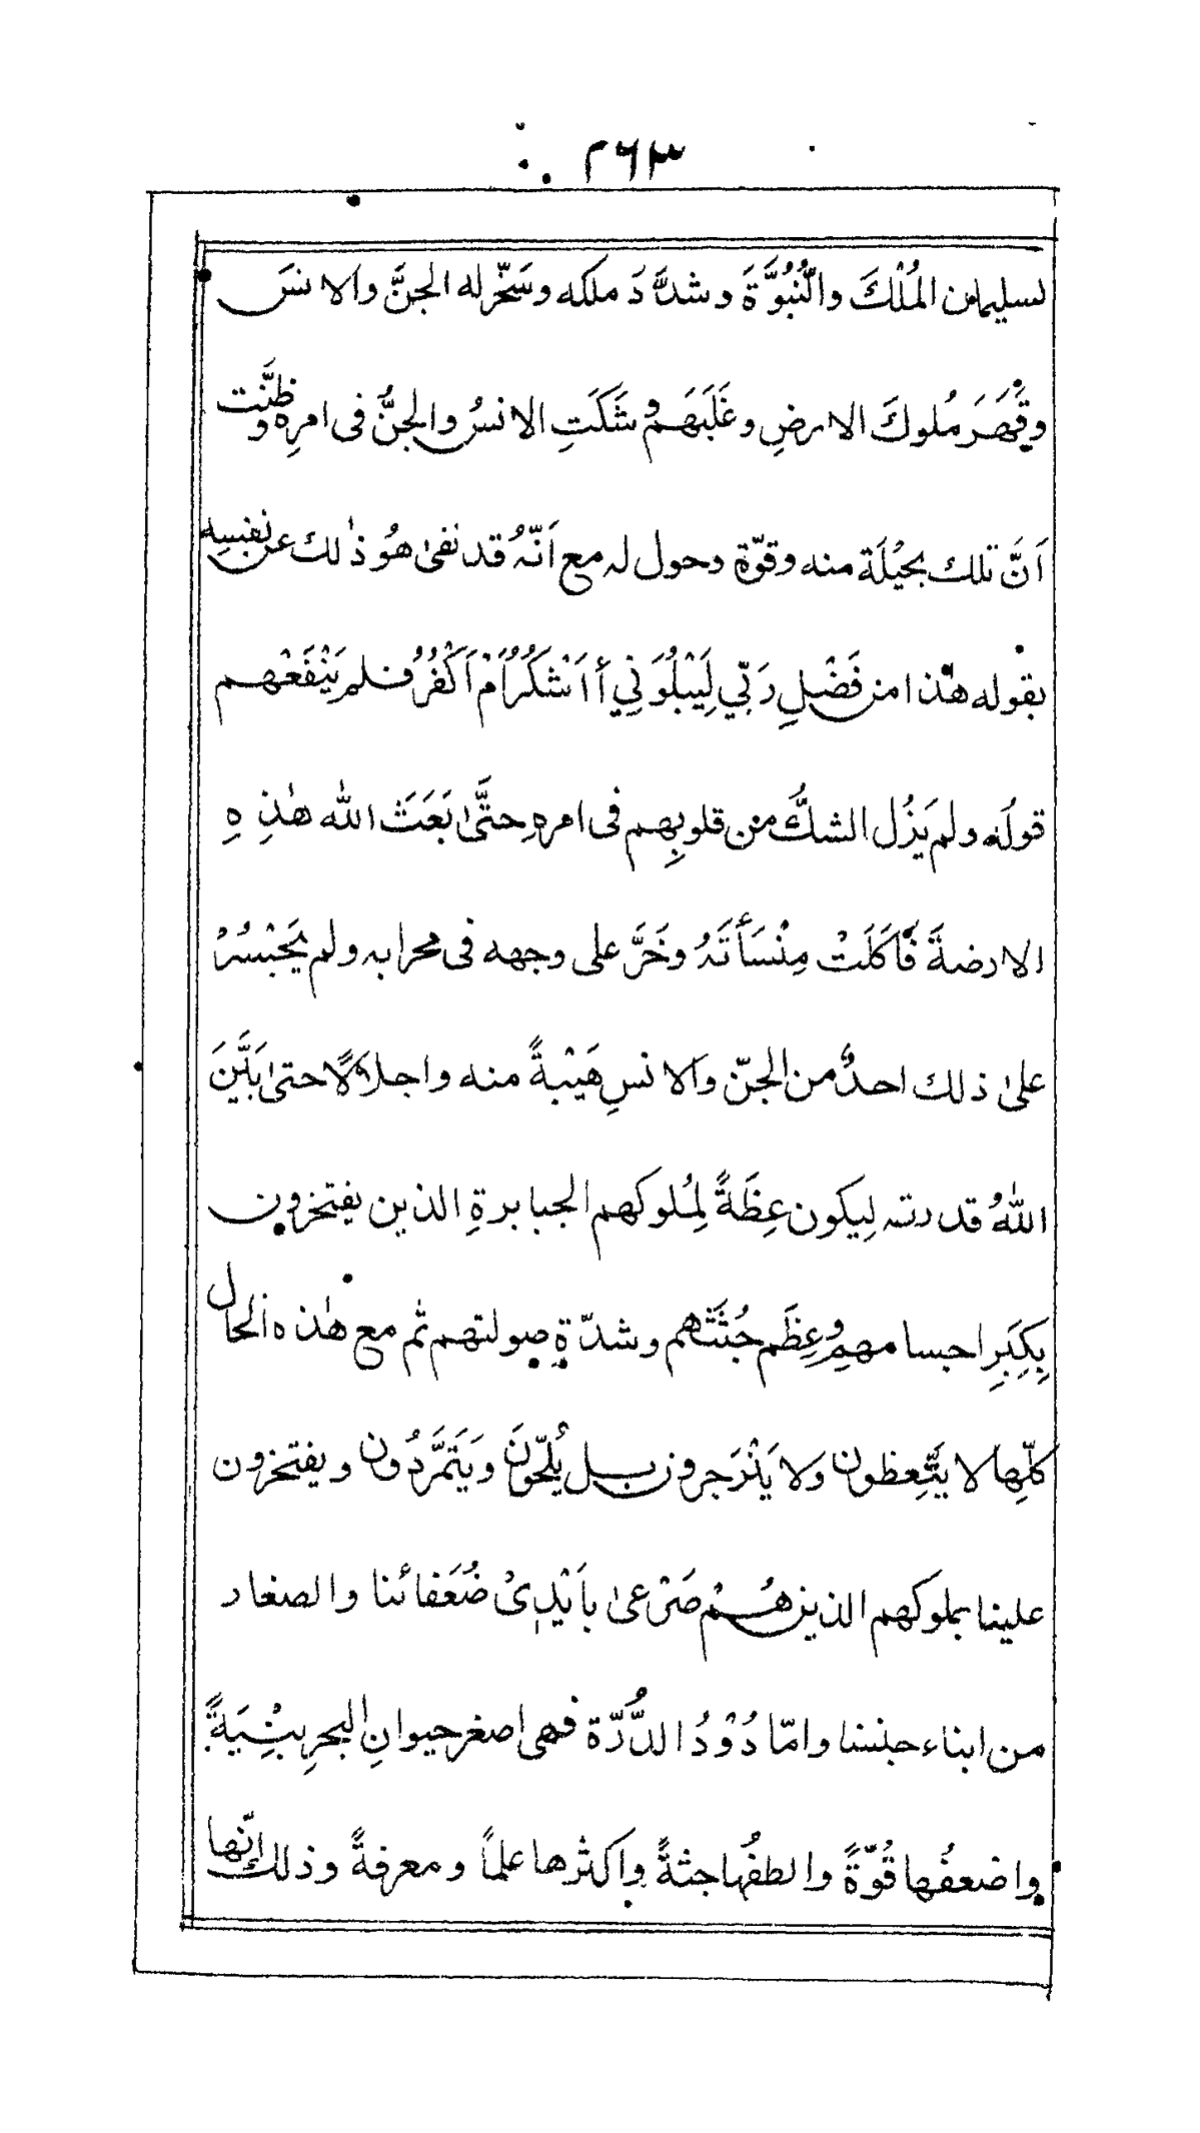 ٢٦٣
لسليمان المُلْكَ والنُّبُوَّةَ وشدَّدَ ملكه وسَخّر له الجنَّ والانسَ
وقَهَرَ مُلوكَ الارضِ وغَلَبَهَمُ وشَكَتِ الانسُ والجنُّ فى امرِه وظنَّت
اَنَّ تلك بحيْلَة منه وقوّة وحول له مع اَنّهُ قد نفىٰ هُو ذٰلك عن نفسِه
بقوله هٰذا من فَضْلِ رَبّي لِيَبْلُوَنِي أَاَشْكُرُ اَمْ اَكْفُرُ فلم يَنْفَعْهم
قولُه ولم يَزُل الشكُّ من قلوبِهِم فى امرهِ حتَّىٰ بَعَثَ الله هٰذِهِ
الارضةَ فَاَكَلَتْ مِنْسَأَتَهُ وخَرَّ على وجهه فى محرابه ولم يَجْسُرْ
علىٰ ذلك احدٌ من الجنّ والانسِ هَيْبةً منه واجلالًا حتىٰ بَيَّنَ
اللهُ قدرته لِيكون عِظَةً لِمُلوكهم الجبابرةِ الذين يفتخرون
بِكِبَرِ اجسامهِم وعِظَم جُثَثَهم وشدّة صولتهم ثم مع هٰذه الحال
كلّها لا يتَّعِظون ولا يَنْزَجرون بل يُلحّونَ ويَتَمَّردُون ويفتخرون
علينا بملوكهم الذين هُمْ صَرْعىٰ بأيْدِىْ ضُعَفائنا والصغار
من ابناء جنسنا وامّا دُوْدُ الدُّرّة فهى اصغر حيوانِ البحرِ بنْيَةً
واضعفُها قُوّةً والطفُها جثةً واكثرها علماً ومعرفةً وذلك انّها